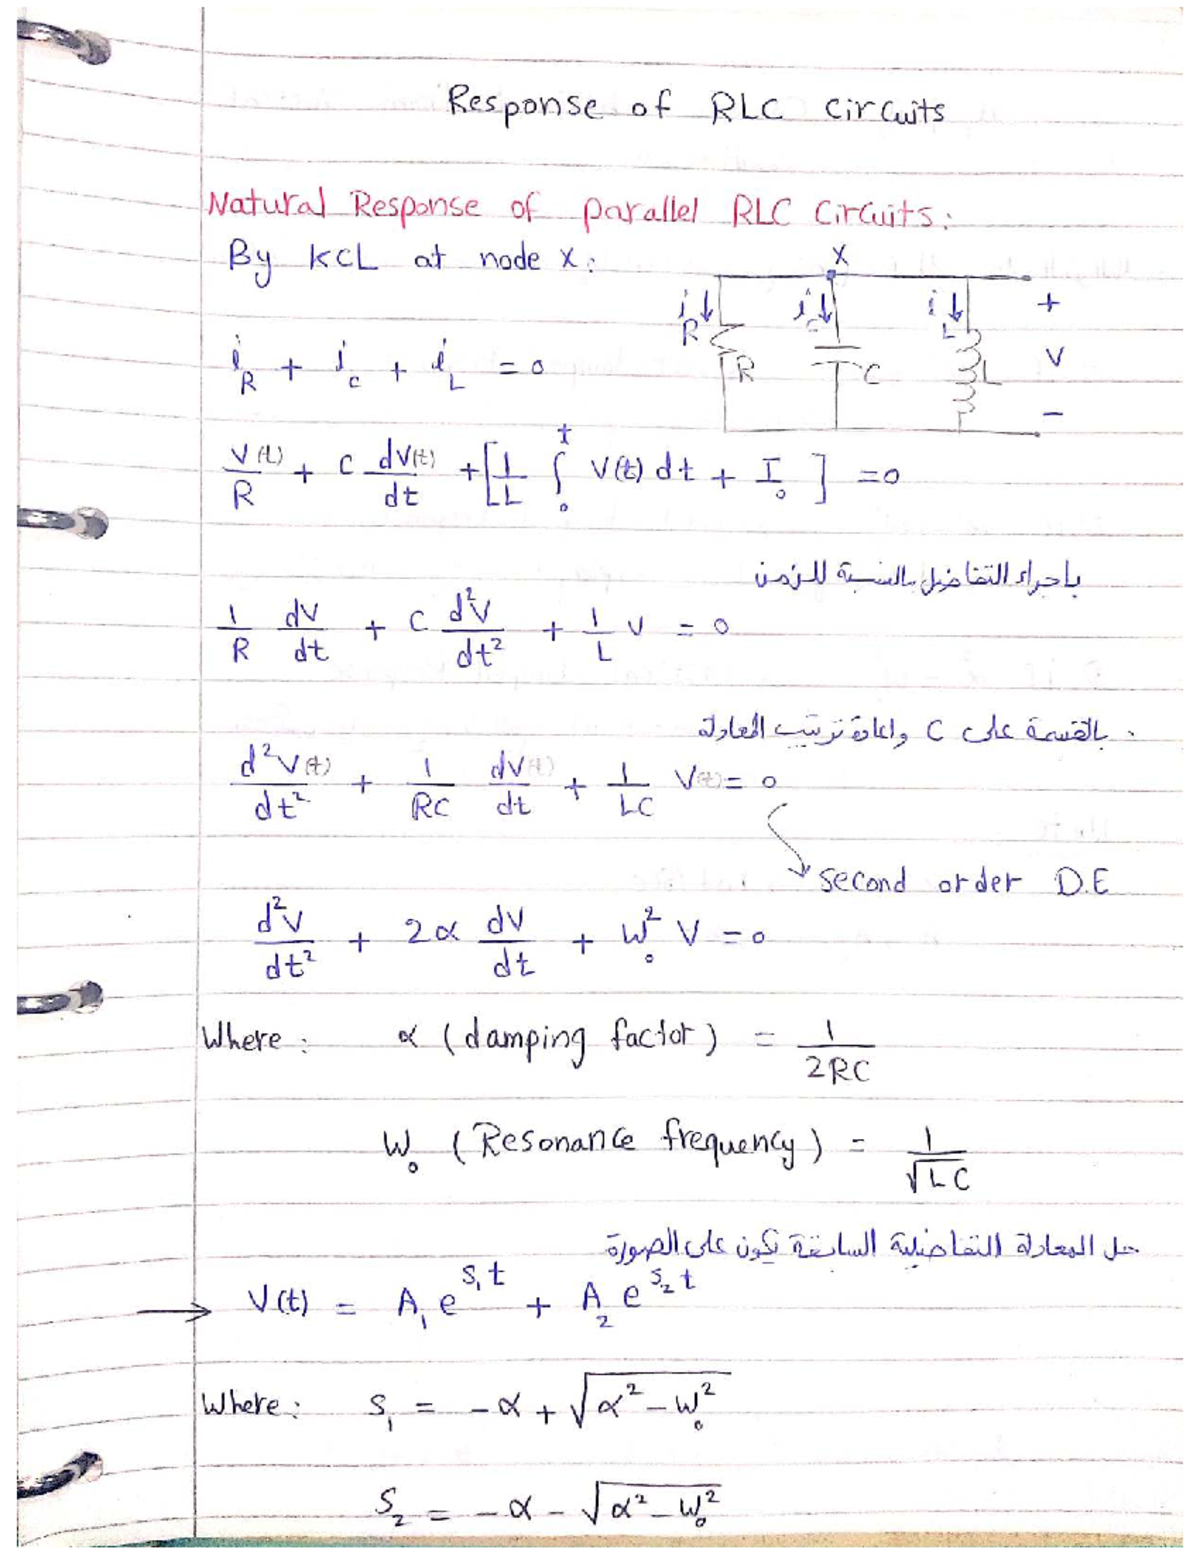 Response of RLC Circuits
Natural Response of parallel RLC Circuits:
By KCL at node X:
X
i_R
i_c
i_L
+
V
-
R
C
L
i_R + i_c + i_L = 0
V(t)/R + C dV(t)/dt + [1/L ∫_0^t V(t) dt + I_0] = 0
بإجراء التفاضل بالنسبة للزمن
1/R dV/dt + C d²V/dt² + 1/L V = 0
بالقسمة على C واعادة ترتيب المعادلة
d²V(t)/dt² + 1/RC dV(t)/dt + 1/LC V(t) = 0
second order D.E
d²V/dt² + 2α dV/dt + W_0² V = 0
Where: α (damping factor) = 1/2RC
W_0 (Resonance frequency) = 1/√LC
حل المعادلة التفاضلية السابقة يكون على الصورة
→ V(t) = A_1 e^{S_1 t} + A_2 e^{S_2 t}
Where: S_1 = -α + √(α² - W_0²)
S_2 = -α - √(α² - W_0²)